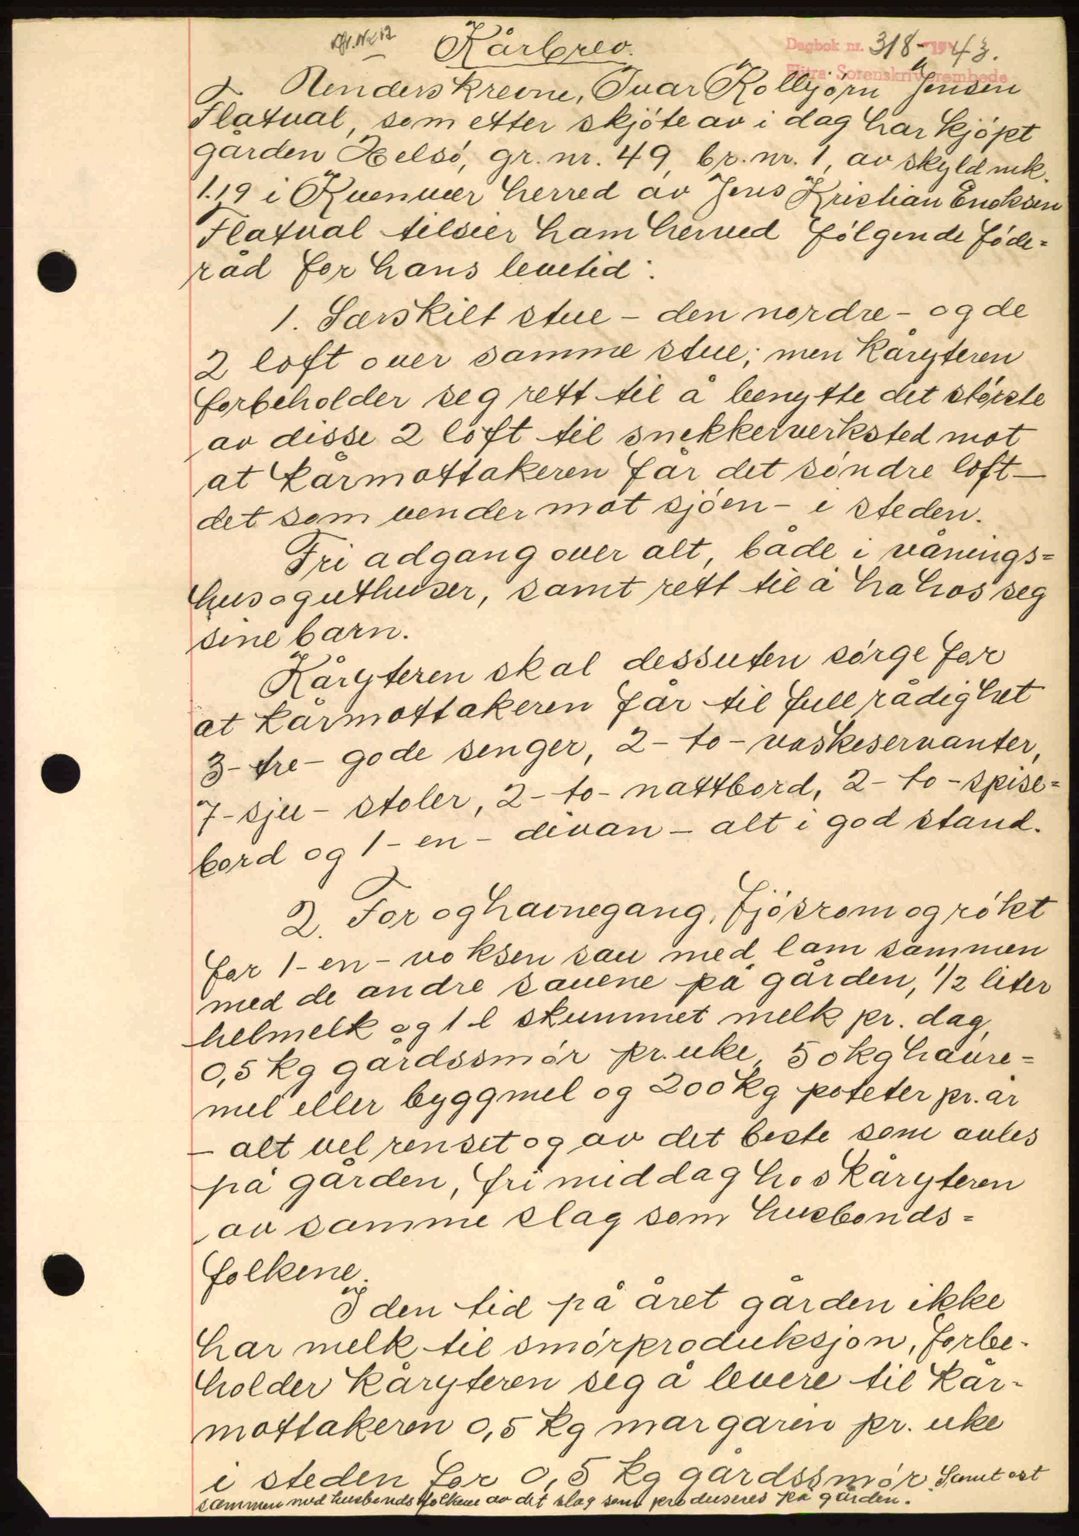 Kårbrev.
Dagbok nr. 318 - 1943.
Hitra Sorenskriverembede
Nenderskrevne, Ivar Kolbjörn Jensen
Flatval, som etter skjöte av i dag har kjöpt
gården Helsö, gr. nr. 49, br. nr. 1, av skyld mk.
1.19 i Kvenvær herred av Jens Kristian Enoksen
Flatval tilsier ham herved følgende føde=
råd for hans levetid:
1. Særskilt stue - den nordre - og de
2 loft over samme stue; men kåryteren
forbeholder seg rett til å benytte det største
av disse 2 loft til snekkerverksted mot
at kårmottakeren får det søndre loft -
det som vender mot sjøen - i steden.
Fri adgang over alt, både i vånings=
hus og uthuser, samt rett til å ha hos seg
sine barn.
Kåryteren skal dessuten sørge for
at kårmottakeren får til full rådighet
3 - tre - gode senger, 2 - to - vaskeservanter,
7 - sju - stoler, 2 - to - nattbord, 2 - to - spise=
bord og 1 - en - divan - alt i god stand.
2. For og havnegang, fjøsrom og røkt
for 1 - en - voksen sau med lam sammen
med de andre sauene på gården, 1/2 liter
helmelk og 1 l skummet melk pr. dag,
0,5 kg gårdssmør pr. uke, 50 kg havre=
mel eller byggmel og 200 kg poteter pr. år
- alt vel renset og av det beste som avles
på gården, fri middag hos kåryteren
av samme slag som husbonds=
folkene.
I den tid på året gården ikke
har melk til smørproduksjon, forbe-
holder kåryteren seg å levere til kår-
mottakeren 0,5 kg margarin pr. uke
i steden for 0,5 kg gårdssmør. Samt ost
sammen med husbondsfolkene av det slag som produseres på gården.